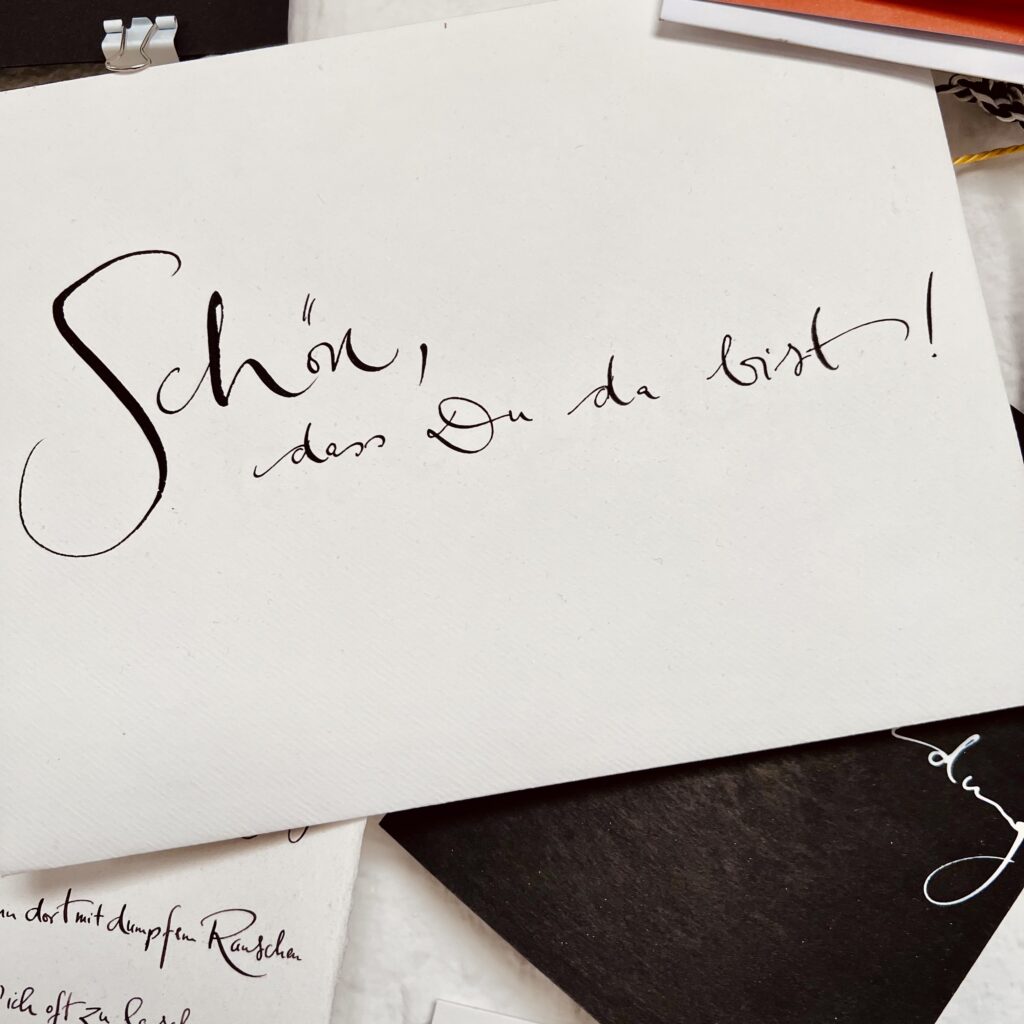 Schön,
dass Du da bist!
dort mit dumpfem Rauschen
ich oft zu